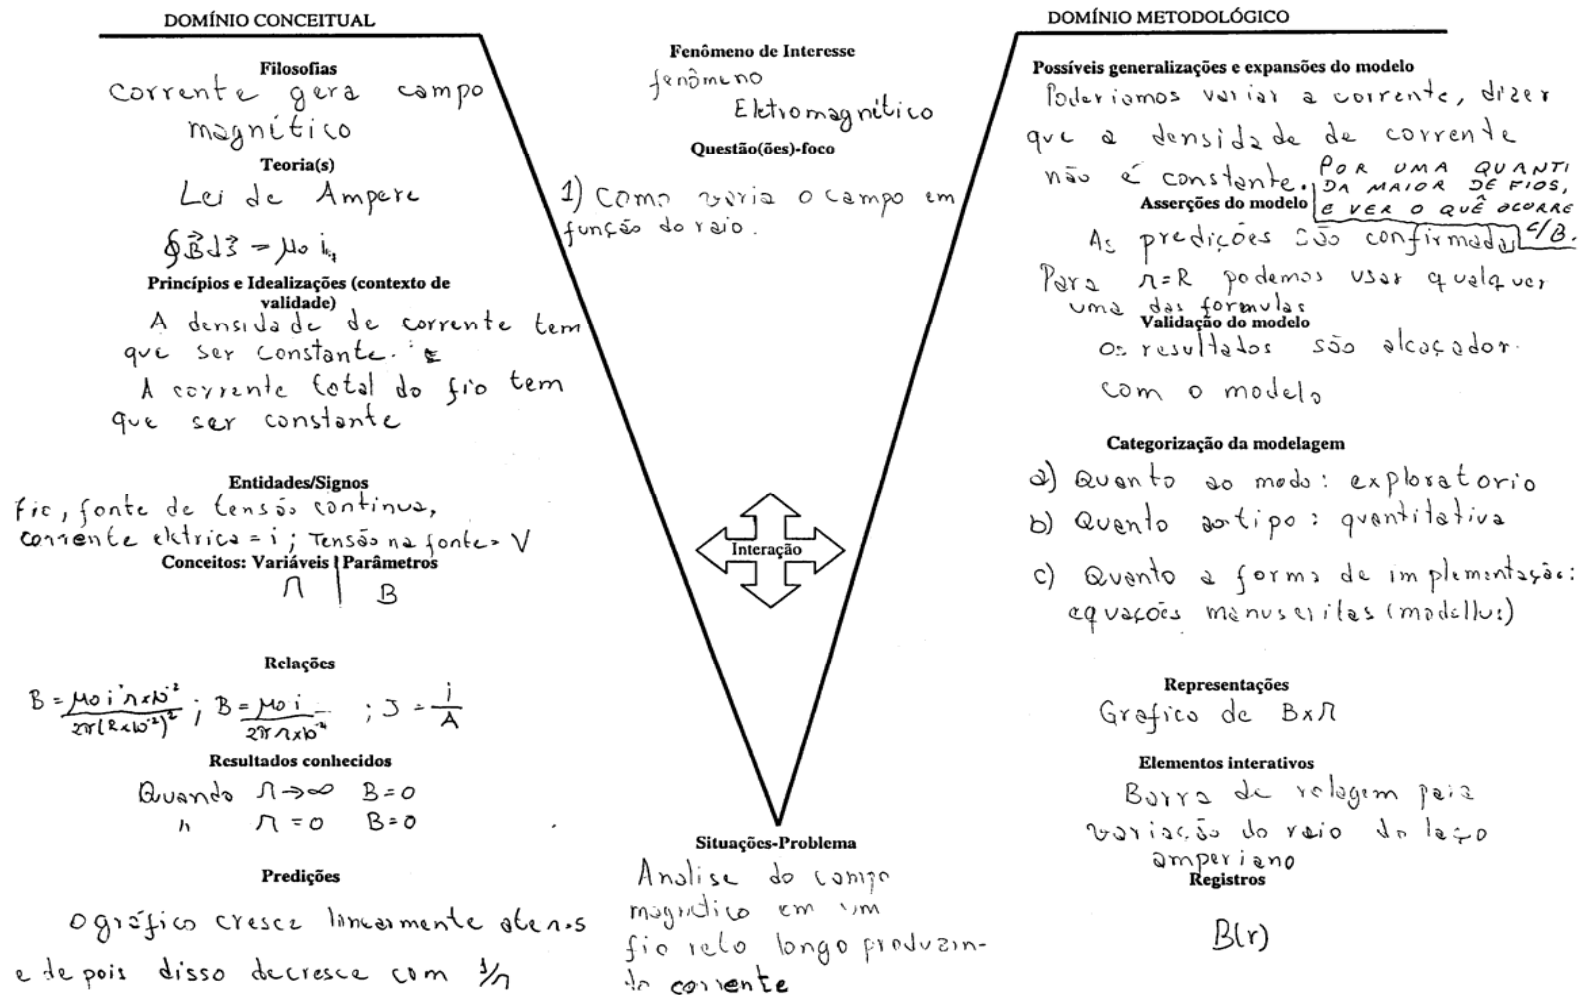 DOMÍNIO CONCEITUAL
Filosofias
corrente gera campo
magnético
Teoria(s)
Lei de Ampere
∮B⃗ds⃗ = μ0 i
Princípios e Idealizações (contexto de
validade)
A densidade de corrente tem
que ser constante.
A corrente total do fio tem
que ser constante
Entidades/Signos
Fio, fonte de tensão contínua,
corrente eletrica = i ; Tensão na fonte = V
Conceitos: Variáveis | Parâmetros
r | B
Relações
B = μ0 i r x10^-2 / 2π(Rx10^-2)^2 ; B = μ0 i / 2π r x10^-2 ; J = i/A
Resultados conhecidos
Quando r→∞ B=0
" r=0 B=0
Predições
O gráfico cresce linearmente
e depois disso decresce com 1/r
Fenômeno de Interesse
fenômeno
Eletromagnético
Questão(ões)-foco
1) Como varia o campo em
função do raio.
Interação
Situações-Problema
Analise do campo
magnético em um
fio reto longo produzin-
do corrente
DOMÍNIO METODOLÓGICO
Possíveis generalizações e expansões do modelo
Poderiamos variar a corrente, dizer
que a densidade de corrente
não é constante. POR UMA QUANTI
DA MAIOR DE FIOS,
Asserções do modelo E VER O QUÊ OCORRE
C/B.
As predições são confirmadas
Para r=R podemos usar qualquer
uma das formulas
Validação do modelo
Os resultados são
com o modelo
Categorização da modelagem
a) Quanto ao modo: exploratorio
b) Quanto ao tipo: quantitativa
c) Quanto a forma de implementação:
equações manuscritas (modellus)
Representações
Grafico de BxR
Elementos interativos
Barra de rolagem para
variação do raio do laço
amperiano
Registros
B(r)